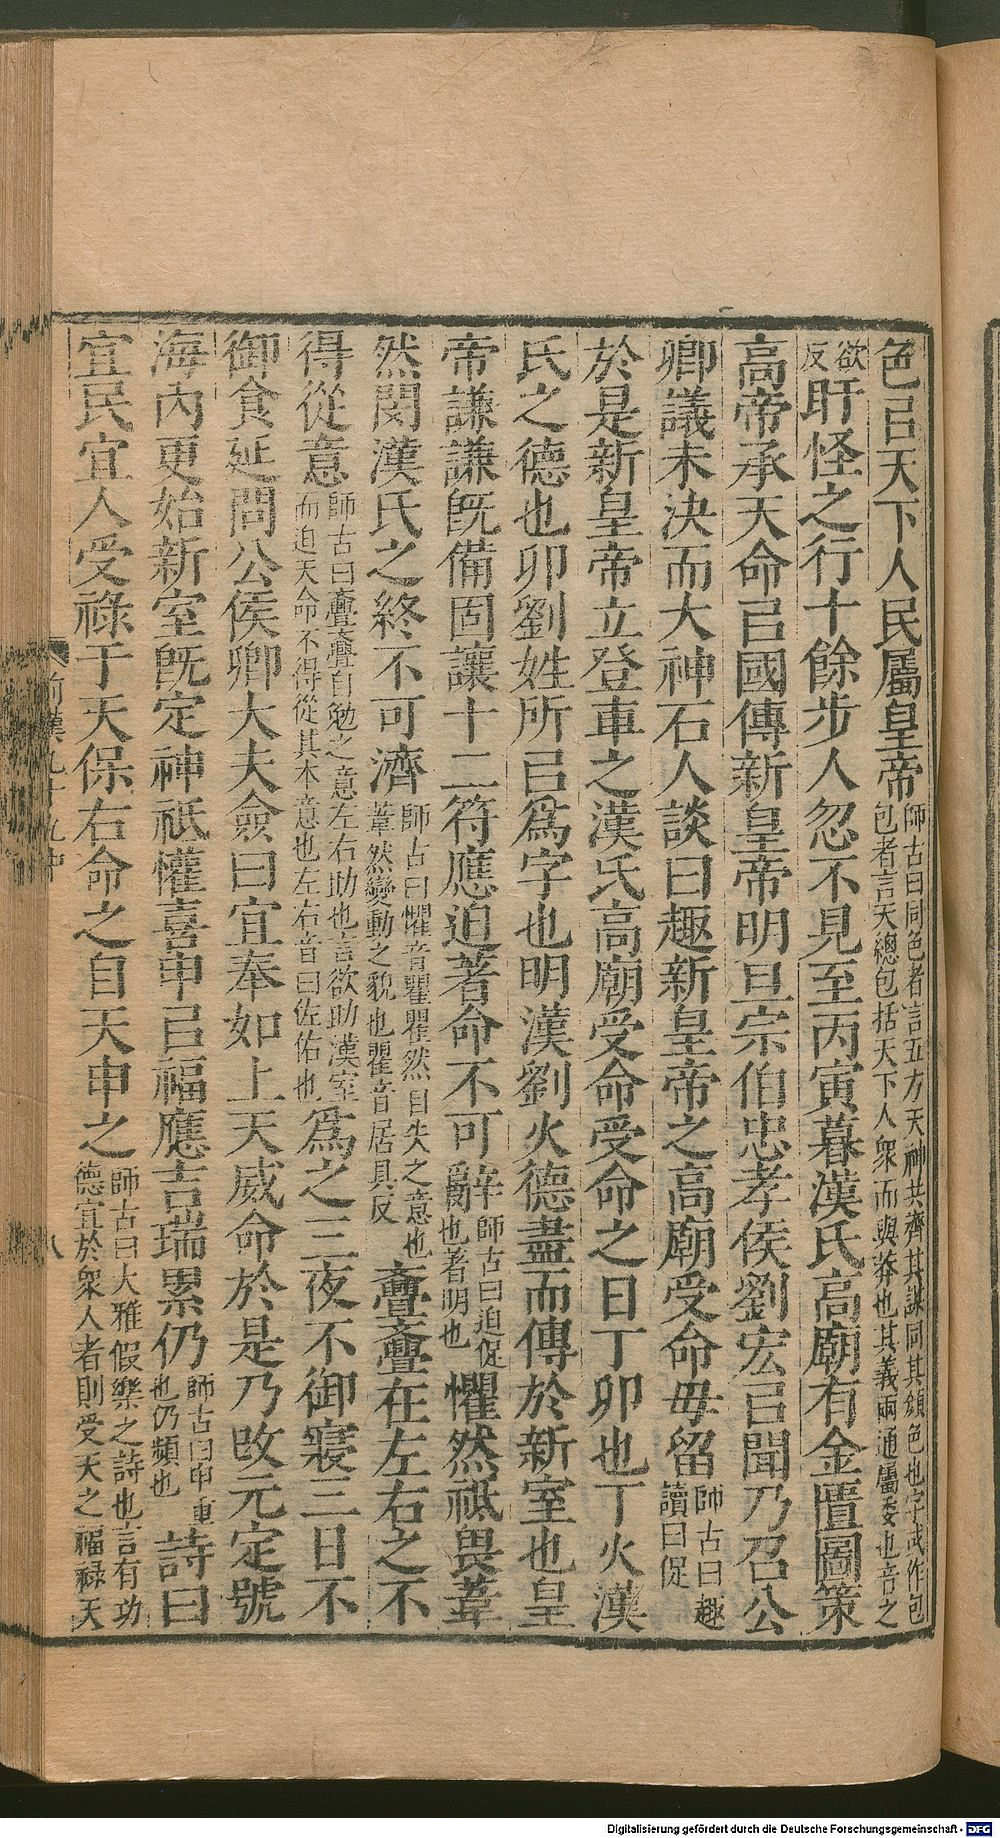 色㠯天下人民屬皇帝師古曰同色者言五方天神共齊其謀同其顔色也字或作包包者言天總包括天下人衆而與莽也其義兩通屬委也音之
欲反盱怪之行十餘步人忽不見至丙寅暮漢氏高廟有金匱圖策
高帝承天命㠯國傳新皇帝明旦宗伯忠孝侯劉宏㠯聞乃召公
卿議未決而大神石人談曰趣新皇帝之高廟受命毋留師古曰趣讀曰促
於是新皇帝立登車之漢氏高廟受命受命之日丁卯也丁火漢
氏之德也卯劉姓所㠯爲字也明漢劉火德盡而傳於新室也皇
帝謙謙旣備固讓十二符應迫著命不可辭師古曰迫促也著明也懼然祗畏葦
然閔漢氏之終不可濟師古曰懼音瞿瞿然自失之意也葦然變動之貌也瞿音居具反亹亹在左右之不
得從意師古曰亹亹自勉之意左右助也言欲助漢室而迫天命不得從其本意也左右音曰佐佑也爲之三夜不御寢三日不
御食延問公侯卿大夫僉曰宜奉如上天威命於是乃改元定號
海内更始新室旣定神祇懽喜申㠯福應吉瑞累仍師古曰申重也仍頻也詩曰
宜民宜人受祿于天保右命之自天申之師古曰大雅假樂之詩也言有功德宜於衆人者則受天之福祿天
前漢九十九中
八
Digitalisierung gefördert durch die Deutsche Forschungsgemeinschaft - DFG